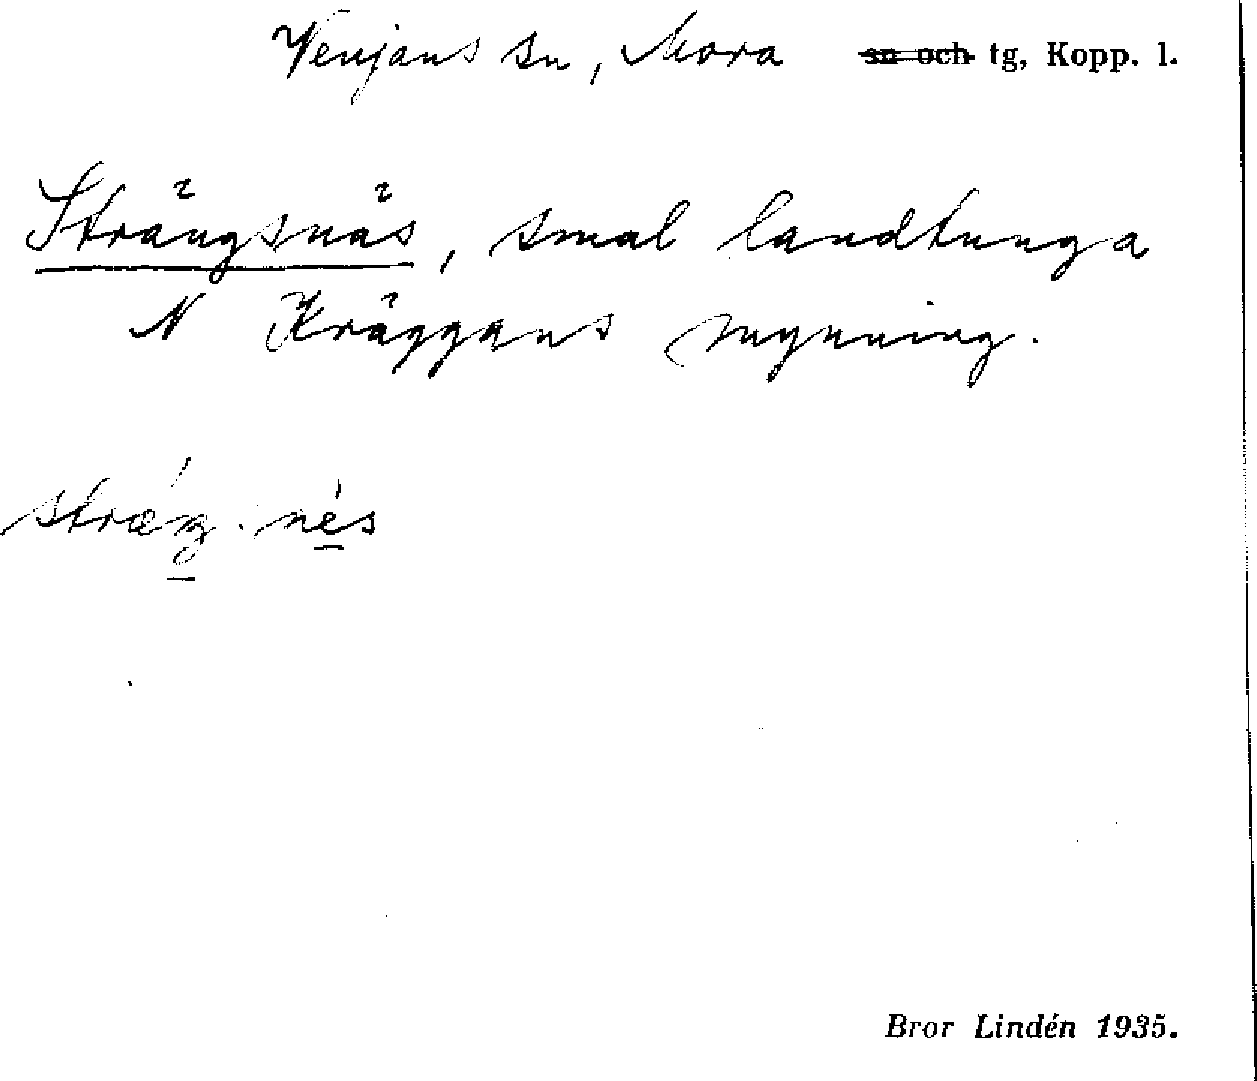 Venjans sn, Mora ~~sn och~~ tg, Kopp. l.
Strängsnäs, smal landtunga
N Kräggans mynning.
nés
Bror Lindén 1935.